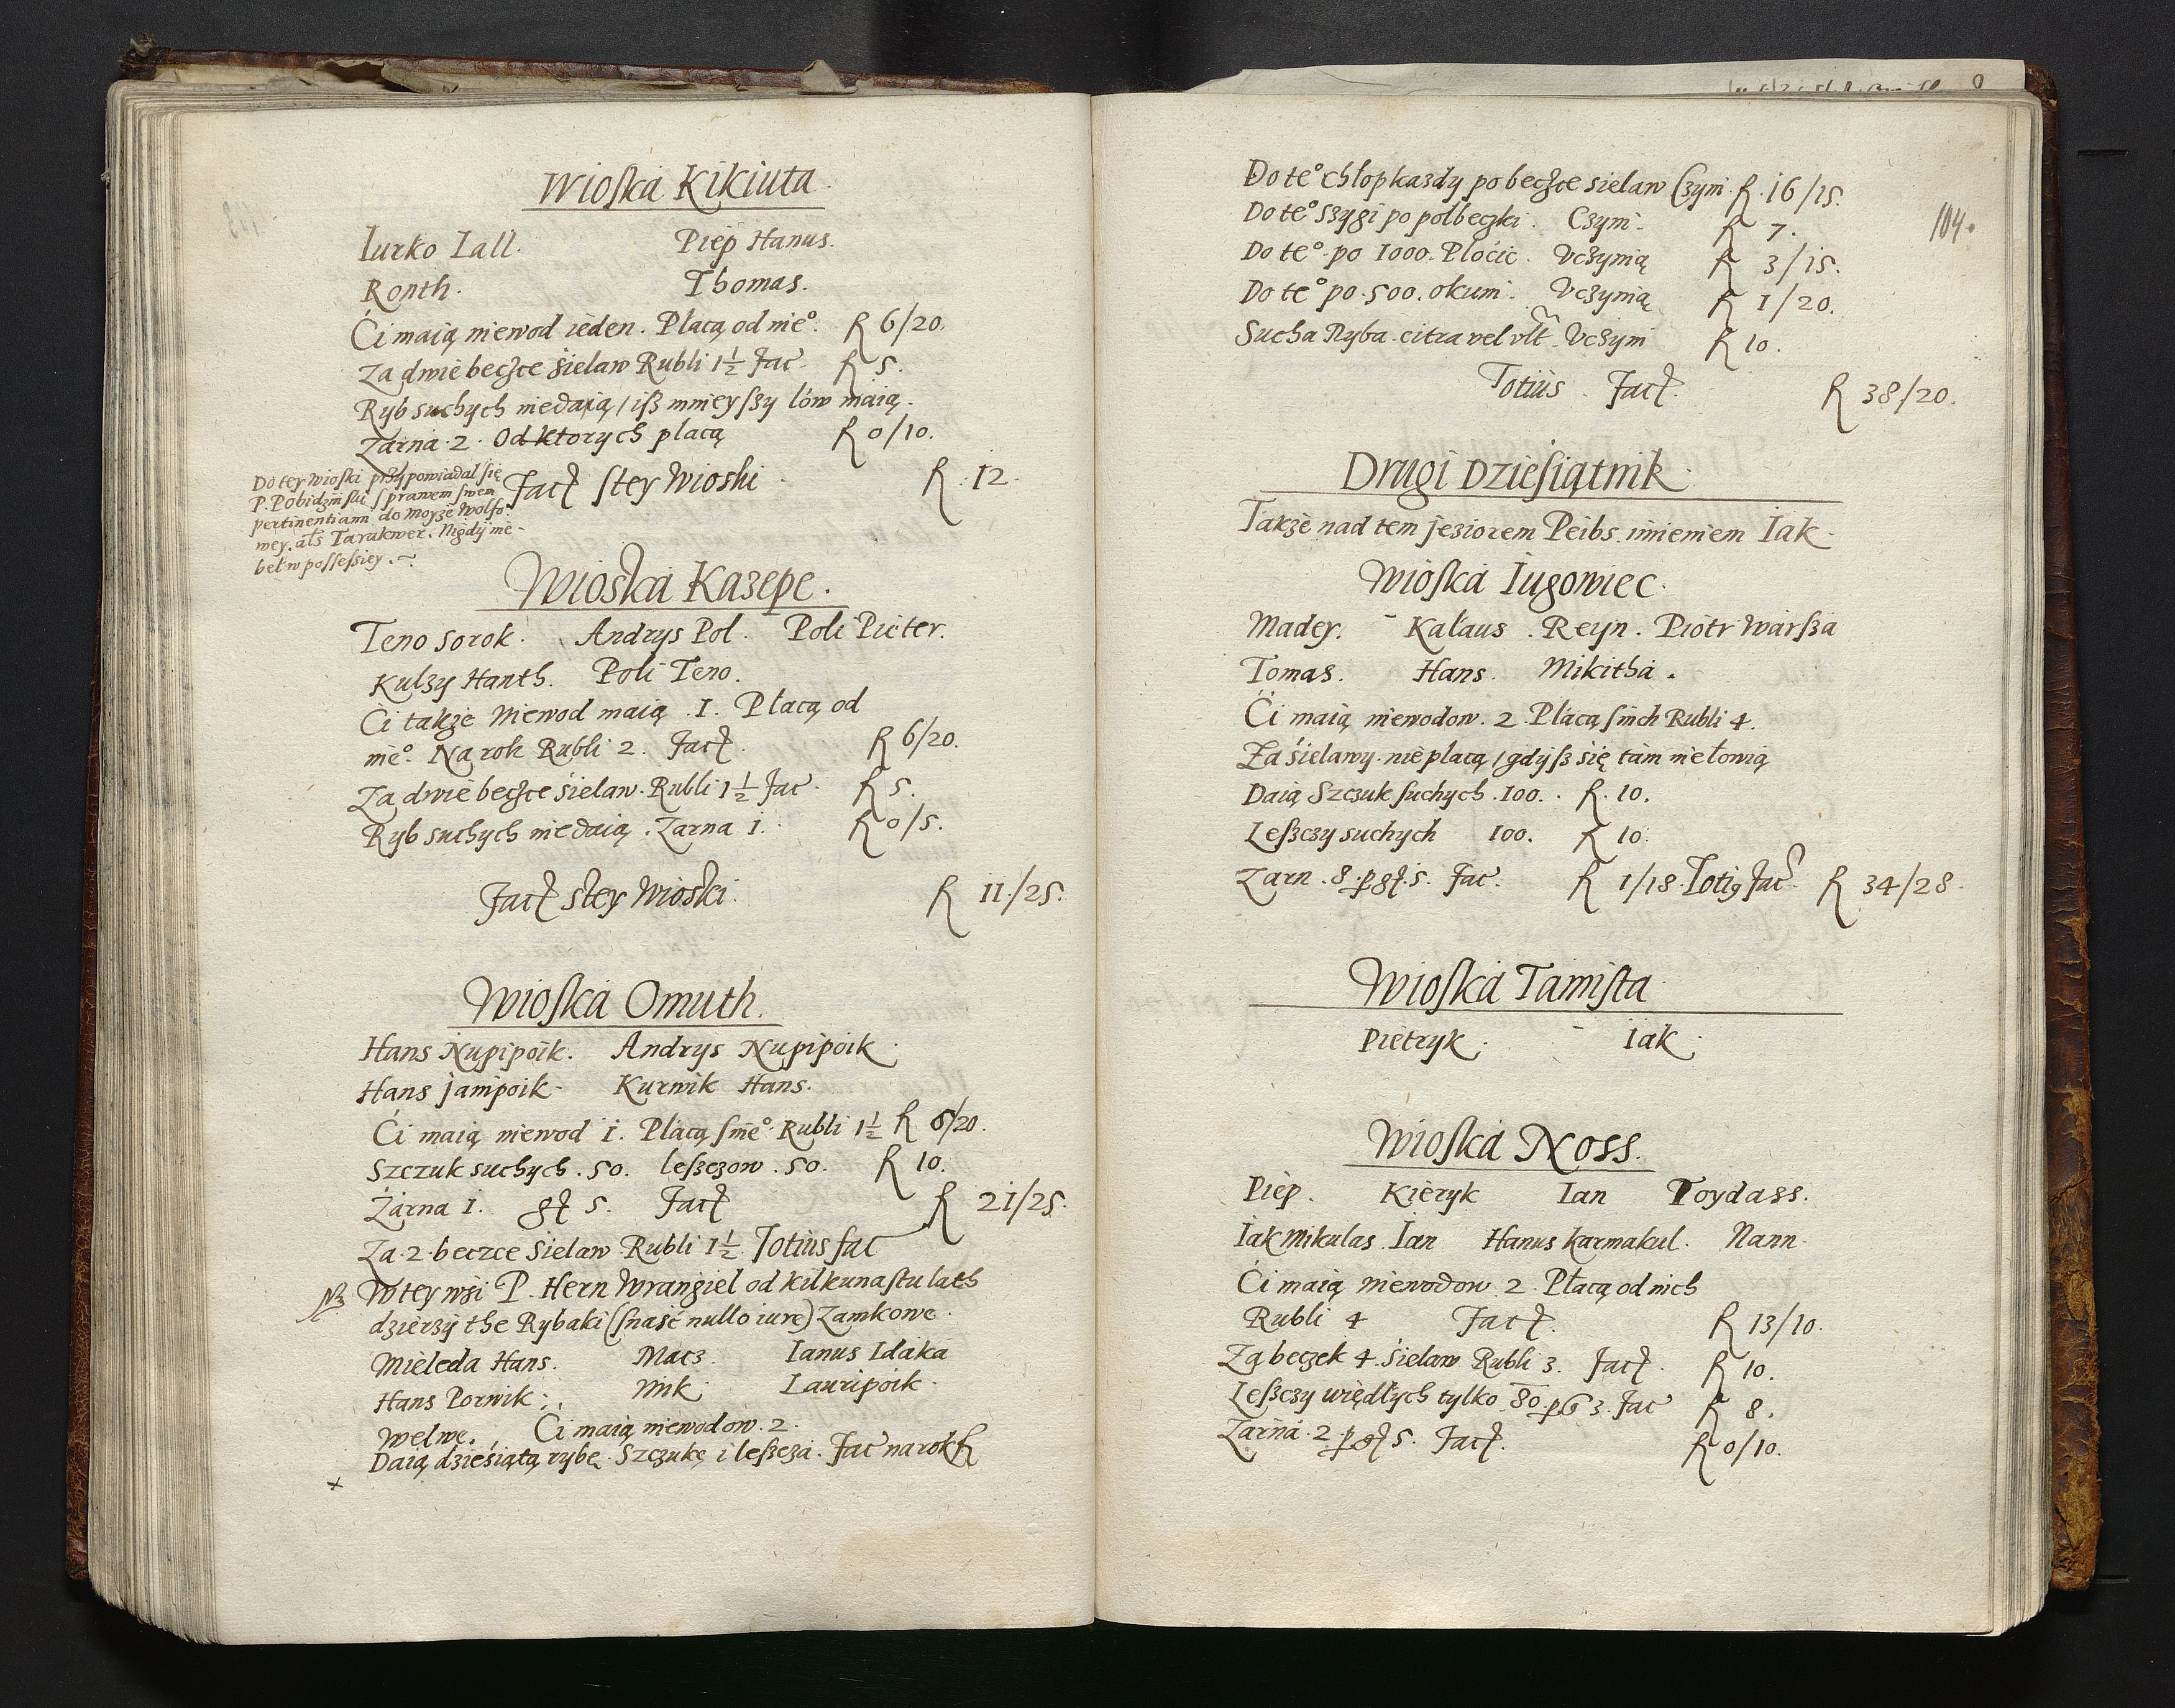 Wioska Kikiuta.
Iurko Iall. Piep Hanus.
Ronth. Thomas.
Ći maią niewod ieden. Płacą od nie°. R 6/20.
Za dwie beczce sielaw Rubli 1½ Fac R 5.
Ryb suchych niedaią / isz mnieyszy lów maią.
Zarna 2. Od ktorych płacą R 0/10.
Facit stey Wioski R. 12.
Do tey Wioski przypowiadał się
P. Pobidzinski sprawem swem
pertinentiam do Moyze Wolfo
wey. als Tarakwer. Nigdy nie
beł w possessiey.
Wioska Kazepe.
Teno Sorok. Andrys Pol. Poli Pieter.
Kulzy Hanth. Poli Teno.
Ći takze Niewod maią .1. Płacą od
nie°. Na rok Rubli 2. Facit. R 6/20.
Za dwie beczce śielaw. Rubli 1½ Fac. R 5.
Ryb suchych niedaią. Zarna 1. R 0/5.
Facit stey Wioski. R 11/25.
Wioska Omuth.
Hans Nupipoik. Andrys Nupipoik.
Hans jamipoik. Kurnik Hans.
Ći maią niewod 1. Płacą s nie° Rubli 1½ R 6/20.
Szczuk suchych .50. leszczow .50. R 10.
Żarna 1. gt 5. Facit R 21/25.
Za .2. beczce Sielaw Rubli 1½. Totius fac
Nz W tey wsi P. Hern Wrangiel od kilkunastu lath
dzierży the Rybaki (snać nullo iure) Zamkowe.
Mieleda Hans. Macz. Ianus Idaka
Hans Pornik. Nink Lauripoik.
Welwe. Ći maią niewodow .2.
Daią dziesiątą rybę. Szczukę i leszcza. Fac na rok R
x
104.
Do te° chłop kazdy po beczce sielaw Czyni. R. 16/15.
Do te° szygi po połbeczki. Czyni. R 7.
Do te° po 1000. Płocic. Uczynią R 3/15.
Do te° po .500. okuni. Uczynią R 1/20.
Sucha Ryba. citra vel ult. Uczyni R 10.
Totius Facit. R 38/20.
Drugi Dziesiątnik.
Takze nad tem jeziorem Peibs. imieniem Iak.
Wioska Iugowiec.
Madey. Kalaus. Reyn. Piotr Warsza
Tomas. Hans. Mikitha.
Ći maią niewodow .2. Płacą s nich Rubli 4.
Za śielawy nie płacą / gdysz się tam nie łowią
Daią Szczuk suchych .100. R. 10.
Leszczy suchych 100. R 10.
Zarn .8. p gt. 5. Fac. R 1/18. Totius Fac. R 34/28.
Wioska Tamista
Pietryk. Iak.
Wioska Noss.
Piep. Kieryk Ian Toydass.
Iak Mikulas. Ian Hanus Karmakul. Nann.
Ći maią niewodow 2. Płacą od nich
Rubli 4 Facit. R 13/10.
Za beczek 4. Śielaw Rubli 3. Facit. R 10.
Leszczy więdłych tylko 80. p G 3. Fac R 8.
Zarna .2. p gt 5. Facit. R 0/10.